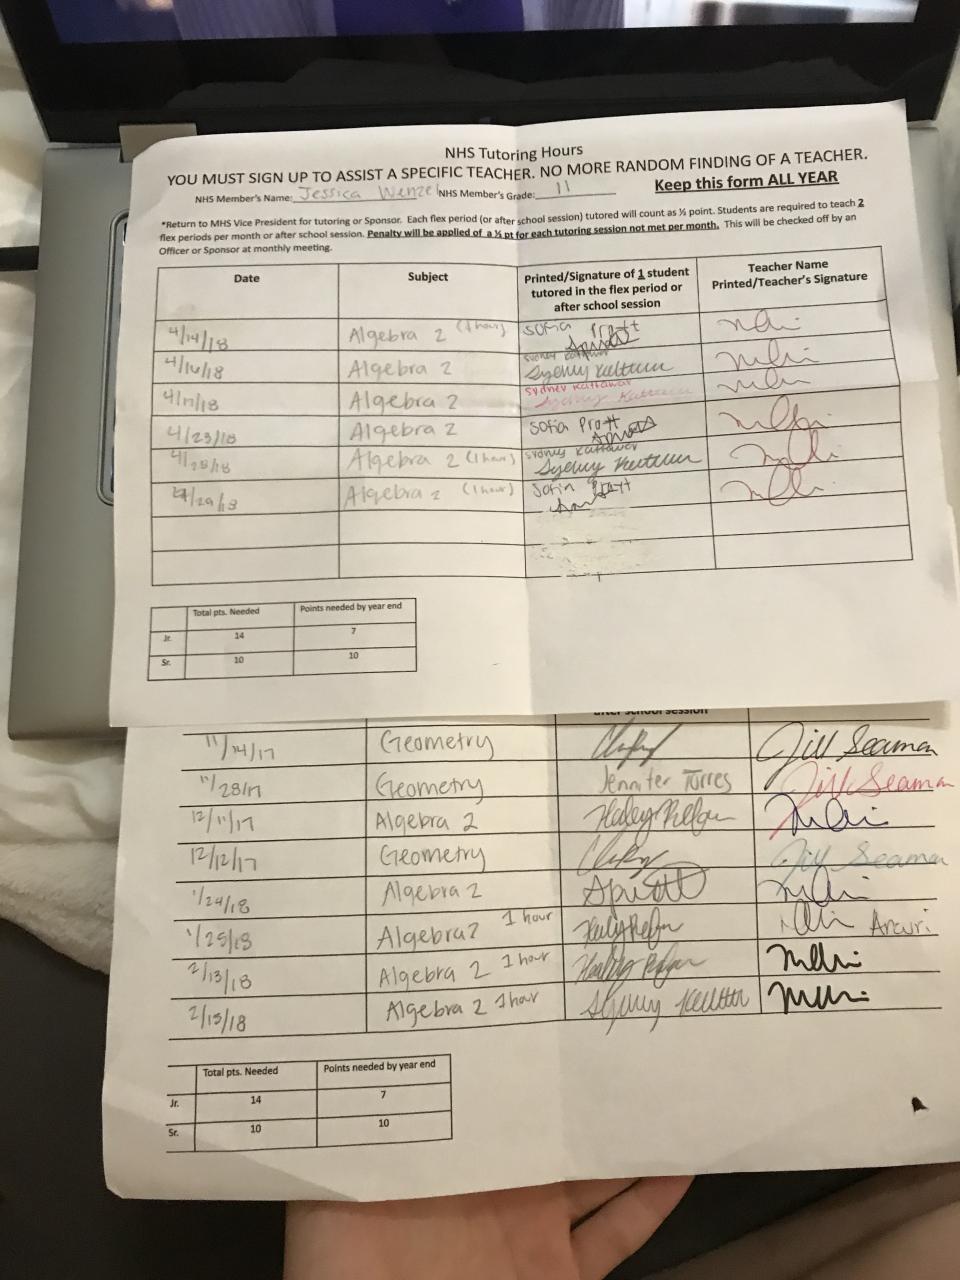 NHS Tutoring Hours
YOU MUST SIGN UP TO ASSIST A SPECIFIC TEACHER. NO MORE RANDOM FINDING OF A TEACHER.
NHS Member's Name: Jessica Wenzel NHS Member's Grade: 11 Keep this form ALL YEAR
*Return to MHS Vice President for tutoring or Sponsor. Each flex period (or after school session) tutored will count as ½ point. Students are required to teach 2
flex periods per month or after school session. Penalty will be applied of a ½ pt for each tutoring session not met per month. This will be checked off by an
Officer or Sponsor at monthly meeting.
Date Subject Printed/Signature of 1 student tutored in the flex period or after school session Teacher Name Printed/Teacher's Signature
4/14/18 Algebra 2 (1 hour) Sofia Pratt
4/16/18 Algebra 2 Sydney Kattawar
4/17/18 Algebra 2 Sydney Kattawar
4/23/18 Algebra 2 Sofia Pratt
4/28/18 Algebra 2 (1 hour) Sydney Kattawar
4/29/18 Algebra 2 (1 hour) Sofia Pratt
Total pts. Needed Points needed by year end
Jr. 14 7
Sr. 10 10
after school session
11/14/17 Geometry Jill Seaman
11/28/17 Geometry Jennifer Torres Jill Seaman
12/11/17 Algebra 2
12/12/17 Geometry Jill Seaman
1/24/18 Algebra 2
1/25/18 Algebra 2 1 hour Arcuri
2/13/18 Algebra 2 1 hour
2/15/18 Algebra 2 1 hour
Total pts. Needed Points needed by year end
Jr. 14 7
Sr. 10 10